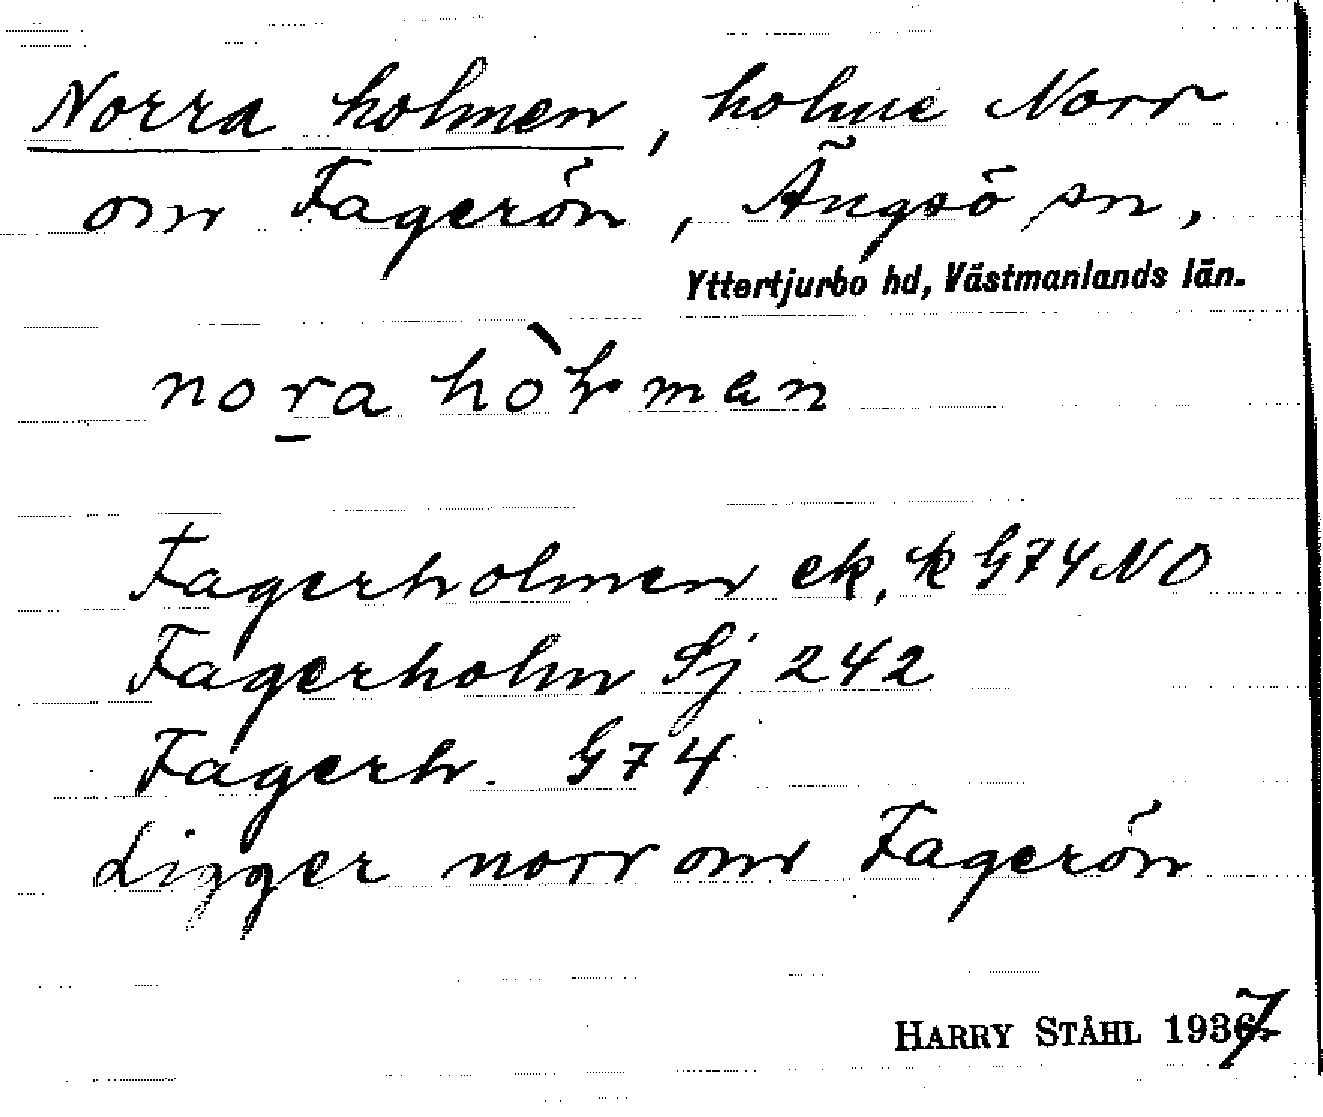 Norra holmen, holme Norr
om Fagerön, Ängsö sn,
Yttertjurbo hd, Västmanlands län.
nora hòɫman
Fagerholmen ek, k G74 NO
Fagerholm Sj 242
Fagerh. G74
Ligger norr om Fagerön
HARRY STÅHL 1937